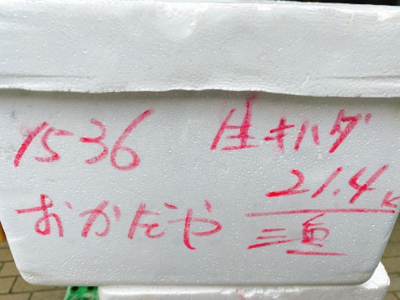 1536
生キハダ
21.4K
おかだや
三重